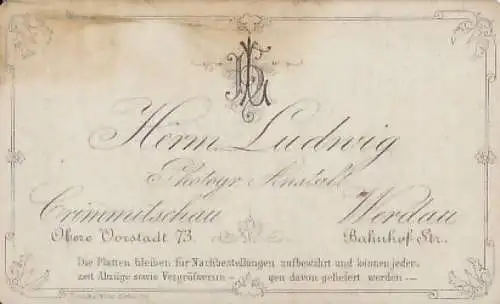 HL
Herm. Ludwig
Photogr. Anstalt
Crimmitschau Werdau
Obere Vorstadt 73. Bahnhof-Str.
Die Platten bleiben für Nachbestellungen aufbewahrt und können jeder-
zeit Abzüge sowie Vergröfserun- gen davon geliefert werden